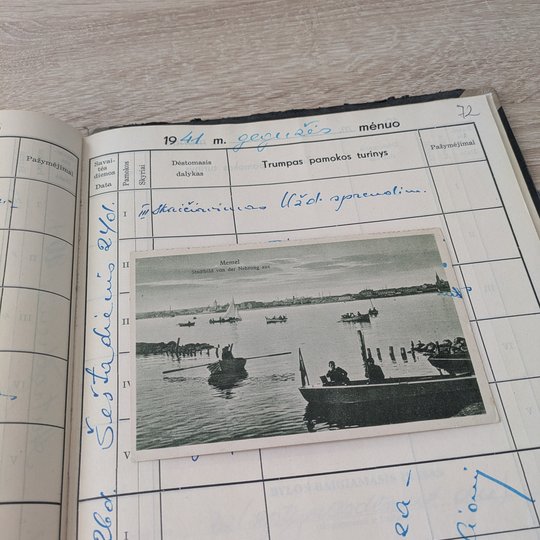 72
1941 m. gegužės mėnuo
Pažymėjimai
Savaitės dienos
Data
Pamokos
Skyriai
Dėstomasis dalykas
Trumpas pamokos turinys
Pažymėjimai
Šeštadienis 24 d.
I III Skaičiavimas Užd. sprendim.
II
Memel
Stadtbild von der Nehrung aus
II
IV
V
26 d.